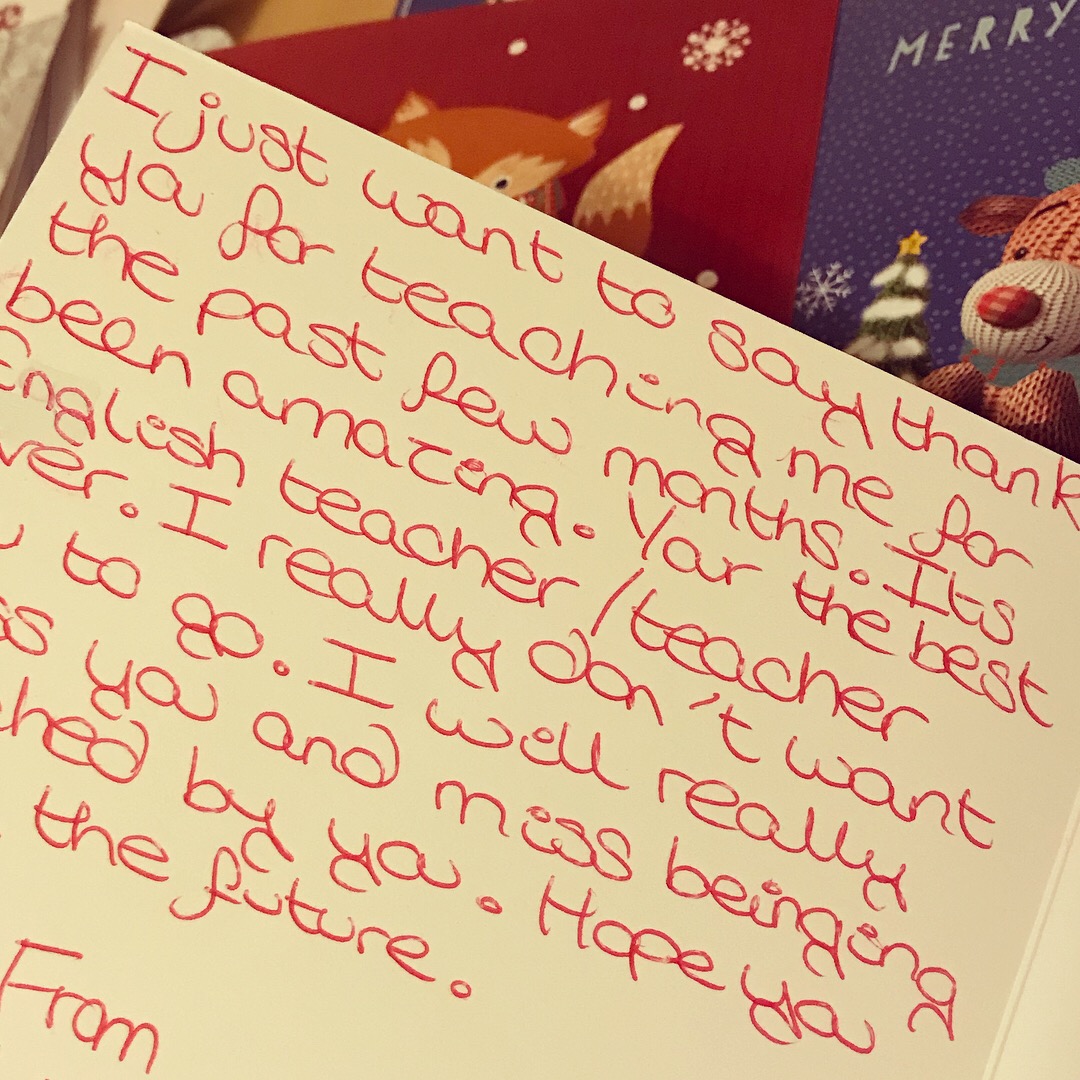 MERRY
I just want to say thank
ya for teaching me for
the past few months. Its
been amazing. Yar the best
English teacher/teacher
ver. I really don't want
to go. I will really
ss ya and miss beinging
hed by ya. Hope ya
the future.
From